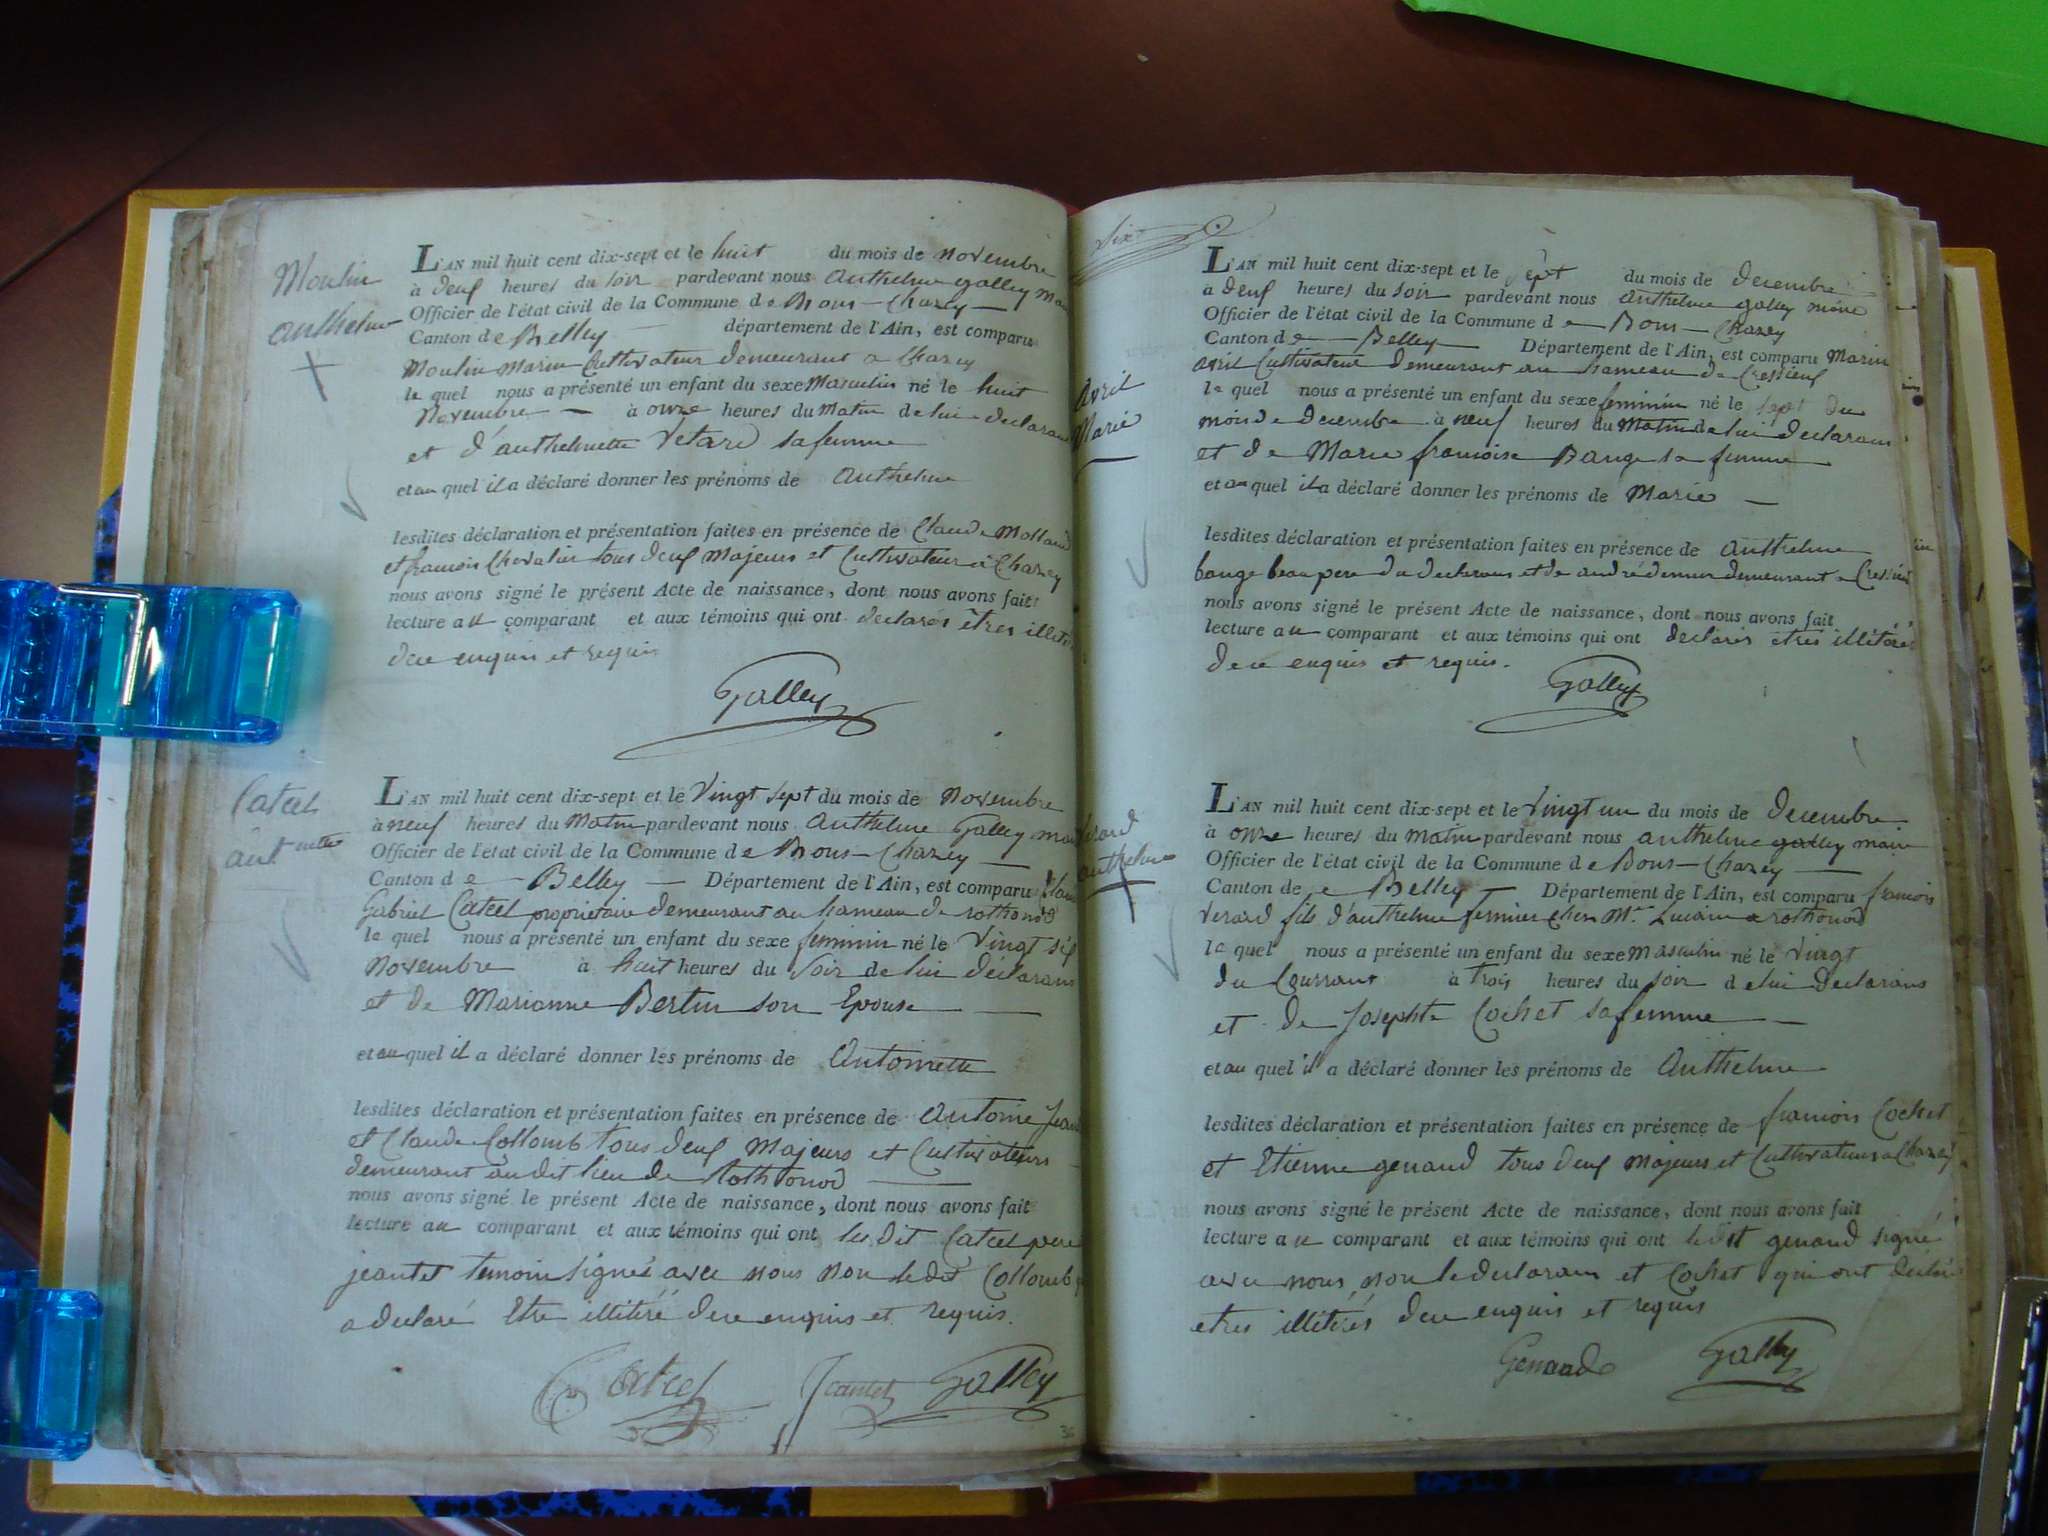 Moulin
anthelme
L'AN mil huit cent dix-sept et le huit du mois de novembre
à deux heures du soir pardevant nous Anthelme galley
Officier de l'état civil de la Commune de Bons-Chazey
Canton de Belley département de l'Ain, est comparu
Moulin Marin Cultivateur demeurant a Chazey
le quel nous a présenté un enfant du sexe Masculin né le huit
Novembre à onze heures du Matin de lui declarant
et d'anthelmette Vetard sa femme
et au quel il a déclaré donner les prénoms de Anthelme
lesdites déclaration et présentation faites en présence de Claude Molland
et francois Chevalin tous deux Majeurs et Cultivateur à Chazey
nous avons signé le présent Acte de naissance, dont nous avons fait
lecture au comparant et aux témoins qui ont declarés êtres
de ce enquis et requis
Galley
Catcel
L'AN mil huit cent dix-sept et le Vingt sept du mois de Novembre
à neuf heures du Matin pardevant nous Anthelme Galley
Officier de l'état civil de la Commune de Bons-Chazey
Canton de Belley Département de l'Ain, est comparu
Gabriel Catcel proprietaire demeurant au hameau de rothonod
le quel nous a présenté un enfant du sexe feminin né le Vingt six
Novembre à huit heures du Soir de lui déclarant
et de Marianne Bertin son Epouse
et au quel il a déclaré donner les prénoms de Antoinette
lesdites déclaration et présentation faites en présence de Antoine
et Claude Collomb tous deux Majeurs et Cultivateurs
demeurant audit lieu de Rothonod
nous avons signé le présent Acte de naissance, dont nous avons fait
lecture au comparant et aux témoins qui ont les dit Catcel pere
jeantet temoin signés avec nous non le dit Collomb
a declaré Etre illitéré de ce enquis et requis.
Catcel Jeantet Galley
36
Six
Avril
Marie
L'AN mil huit cent dix-sept et le sept du mois de decembre
à deux heures du soir pardevant nous anthelme galley maire
Officier de l'état civil de la Commune de Bons-Chazey
Canton de Belley Département de l'Ain, est comparu Marin
avril Cultivateur demeurant au hameau de Cressieux
le quel nous a présenté un enfant du sexe feminin né le sept du
mois de decembre à neuf heures du Matin de lui declarant
et de Marie francoise Bauge sa femme
et au quel il a déclaré donner les prénoms de Marie
lesdites déclaration et présentation faites en présence de Anthelme
bauge beau pere du declarant et de andré demeurant a
nous avons signé le présent Acte de naissance, dont nous avons fait
lecture au comparant et aux témoins qui ont declarés etres illitérés
de ce enquis et requis.
Galley
Verard
anthelme
L'AN mil huit cent dix-sept et le Vingt un du mois de Decembre
à onze heures du Matin pardevant nous anthelme galley maire
Officier de l'état civil de la Commune de Bons-Chazey
Canton de Belley Département de l'Ain, est comparu francois
Verard fils d'anthelme fermier chez Mr a rothonod
le quel nous a présenté un enfant du sexe Masculin né le Vingt
du Courrant à trois heures du soir de lui Declarans
et de Josephte Cochet sa femme
et au quel il a déclaré donner les prénoms de Anthelme
lesdites déclaration et présentation faites en présence de francois Cochet
et Etienne genaud tous deux Majeurs et Cultivateurs a Chazey
nous avons signé le présent Acte de naissance, dont nous avons fait
lecture au comparant et aux témoins qui ont le dit genaud signé
avec nous, non le declarans et Cochet qui ont
etres illitérés de ce enquis et requis
Genaud Galley